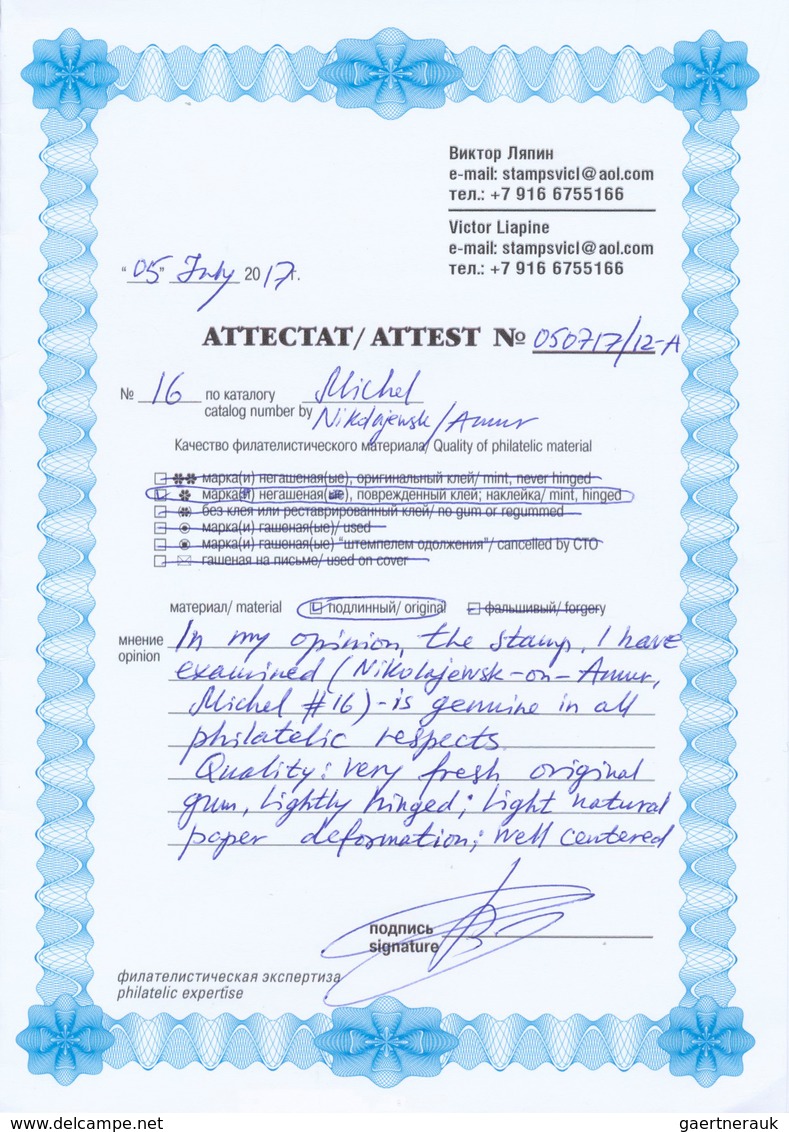 Виктор Ляпин
e-mail: stampsvicl@aol.com
тел.: +7 916 6755166
Victor Liapine
e-mail: stampsvicl@aol.com
тел.: +7 916 6755166
"05" July 2017г.
АТТЕСТАТ/ ATTEST № 050717/12-A
№ 16 по каталогу Michel
catalog number by Nikolajewsk/Amur
Качество филателистического материала/ Quality of philatelic material
марка(и) негашеная(ые), оригинальный клей/ mint, never hinged
марка(и) негашеная(ые), поврежденный клей; наклейка/ mint, hinged
без клея или реставрированный клей/ no gum or regummed
марка(и) гашеная(ые)/ used
марка(и) гашеная(ые) "штемпелем одолжения"/ cancelled by CTO
гашеная на письмо/ used on cover
материал/ material подлинный/ original фальшивый/ forgery
мнение In my opinion, the stamp, I have
opinion examined (Nikolajewsk-on-Amur,
Michel #16) - is genuine in all
philatelic respects.
Quality: very fresh original
gum, lightly hinged; light natural
paper deformation; well centered
подпись
signature
филателистическая экспертиза
philatelic expertise
www.delcampe.net
gaertnerauk